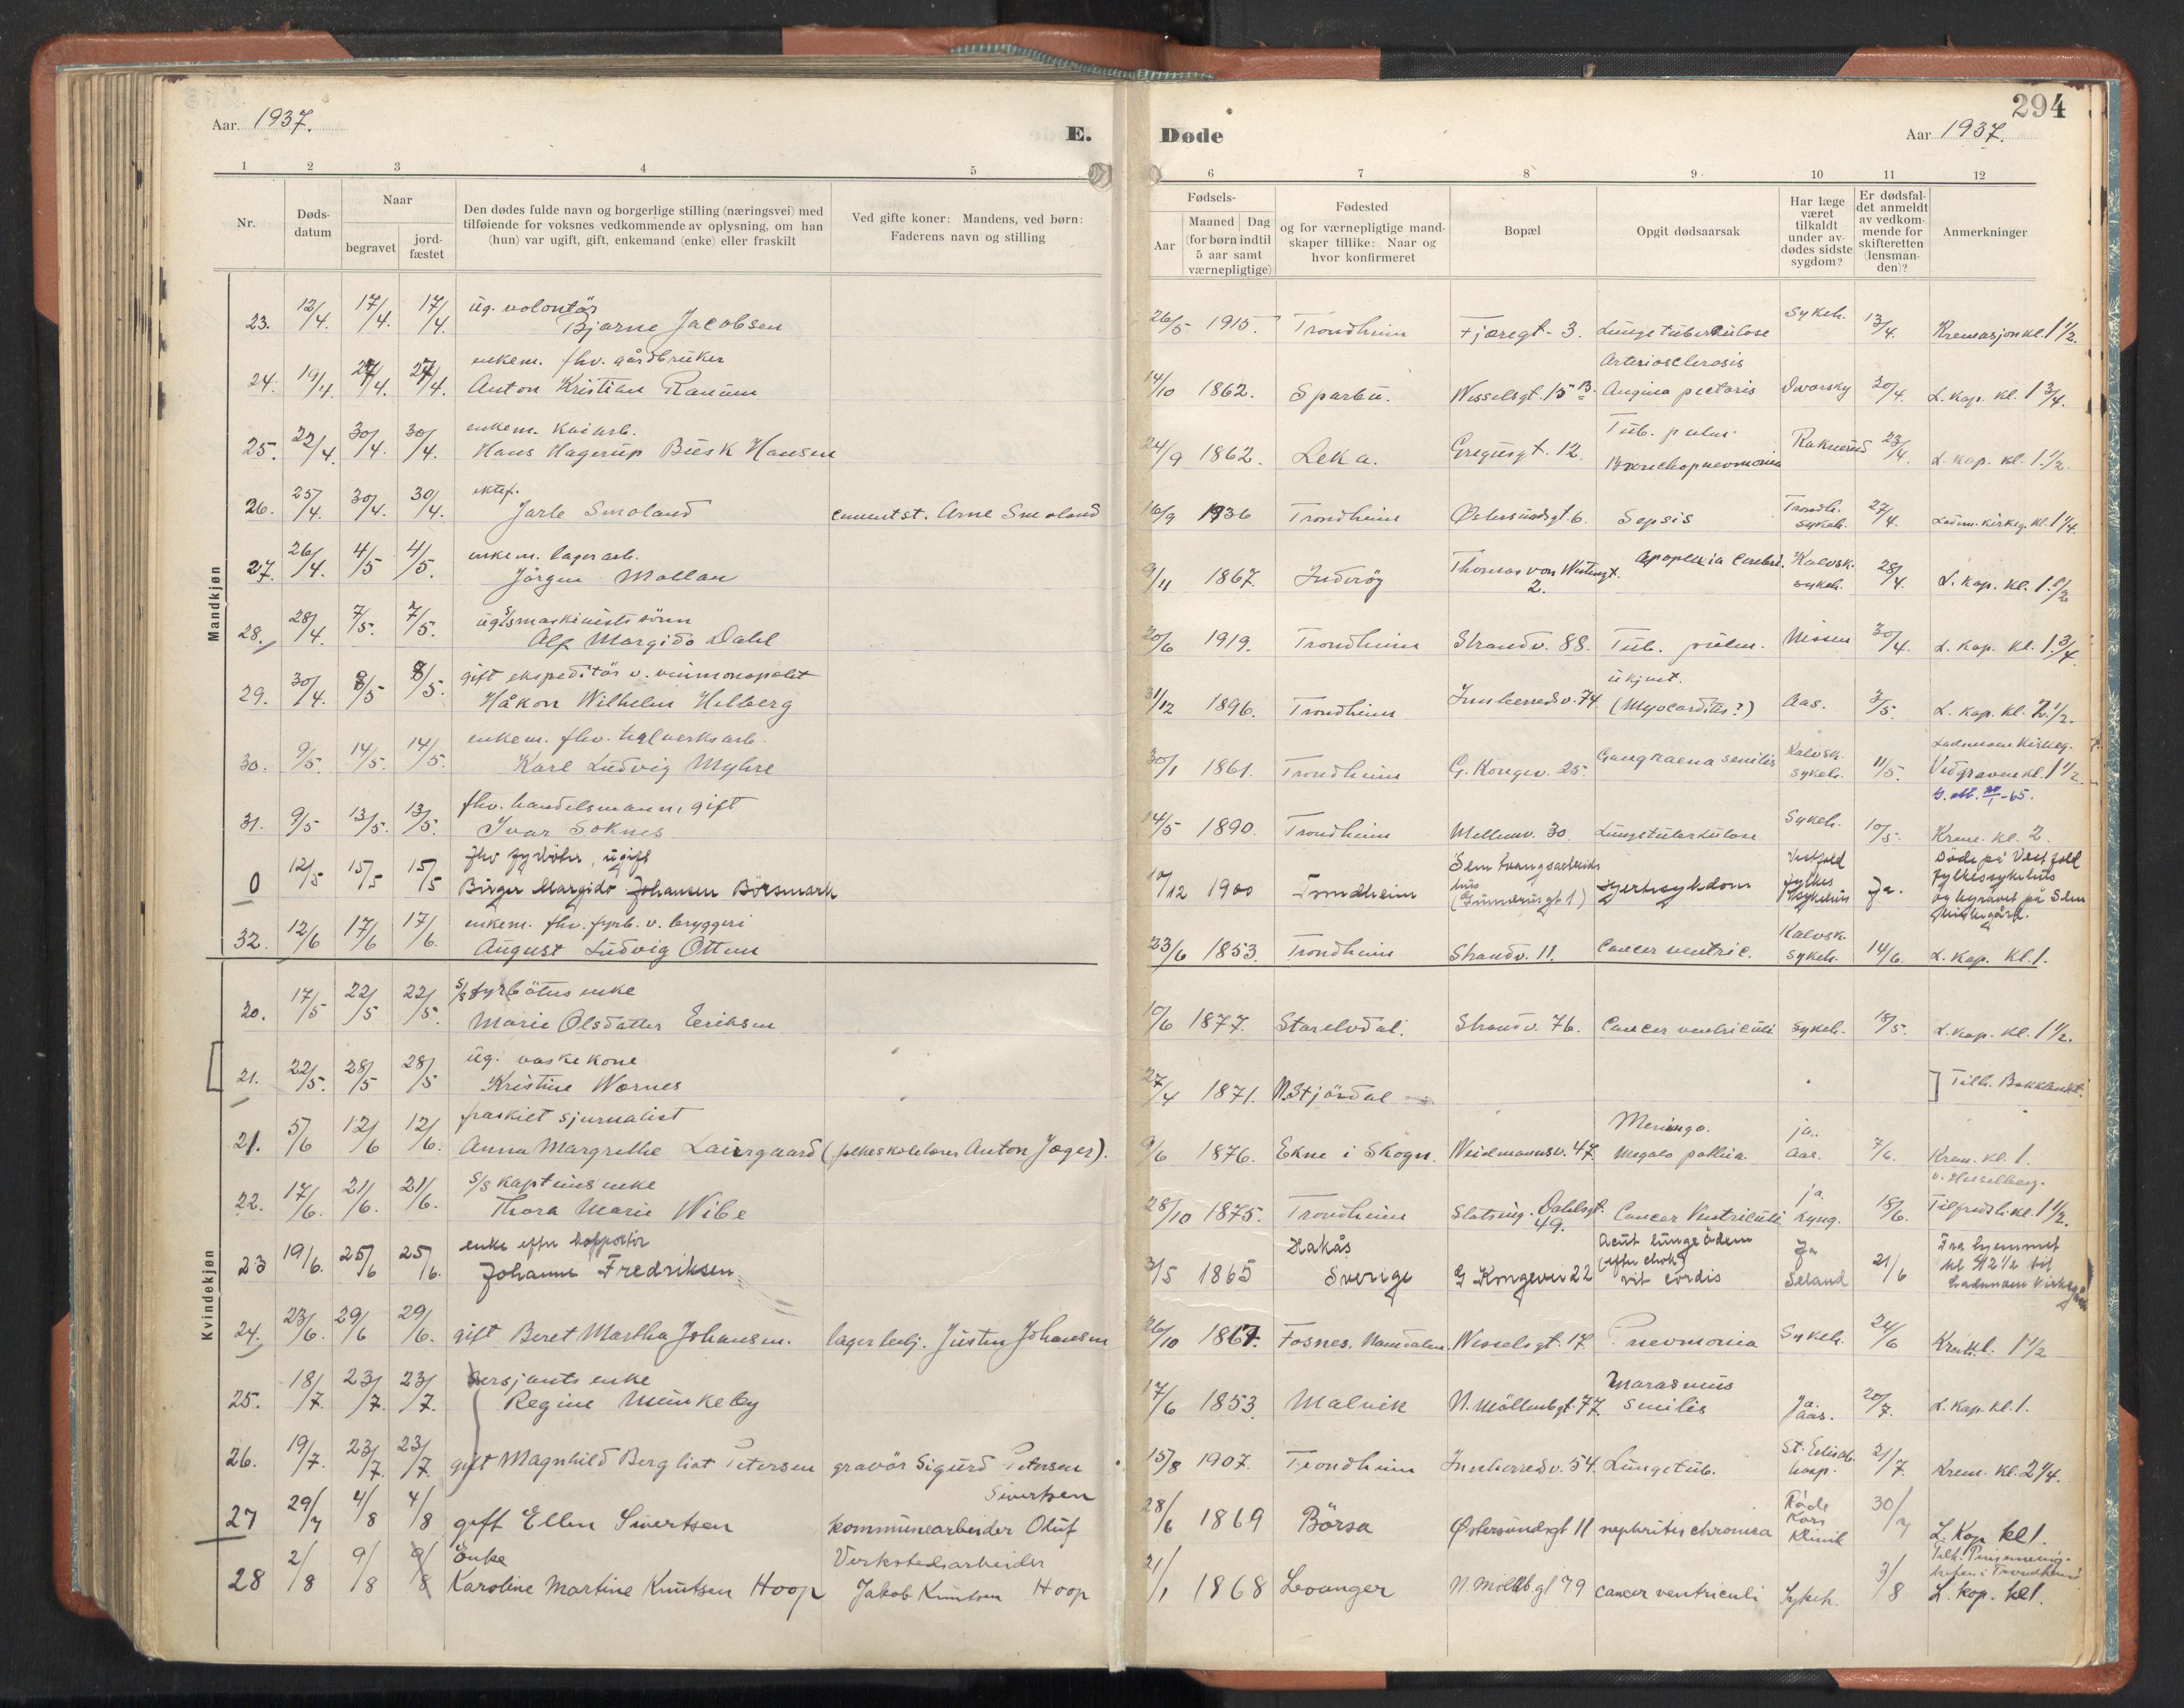 Aar. 1937. E. Døde Aar 1937. 294
1 2 3 4 5 6 7 8 9 10 11 12
Nr.
Døds-
datum
Naar
begravet
jord-
fæstet
Den dødes fulde navn og borgerlige stilling (næringsvei) med
tilføiende for voksnes vedkommende av oplysning, om han
(hun) var ugift, gift, enkemand (enke) eller fraskilt
Ved gifte koner: Mandens, ved børn:
Faderens navn og stilling
Fødsels-
Aar
Maaned Dag
(for børn indtil
5 aar samt
værnepligtige)
Fødested
og for værnepligtige mand-
skaper tillike: Naar og
hvor konfirmeret
Bopæl
Opgit dødsaarsak
Har læge
været
tilkaldt
under av-
dødes sidste
sygdom?
Er dødsfal-
det anmeldt
av vedkom-
mende for
skifteretten
(lensman-
den)?
Anmerkninger
Mandkjøn
ug. volontör Sykeh.
23. 12/4. 17/4. 17/4. Bjarne Jacobsen 26/5 1915. Trondheim Fjæregt. 3. Lungetuberkulose 13/4. Kremasjon kl. 1 1/2.
enkem. fhv. gårdbruker Arteriosclerosis
24. 19/4. 24/4. 24/4. Anton Kristian Ranum 14/10 1862. Sparbu. Wesselsgt. 15 B. Angina pectoris Dvorsky 20/4. L. kap. kl. 1 3/4.
enkem. kaiarb. Tub. pulm.
25. 22/4. 30/4. 30/4. Hans Hagerup Busk Hansen 24/9 1862. Leka. Gregusgt. 12. Bronchopneumonia Raknerud 23/4. L. kap. kl. 1 1/2.
ektef. Trondh.
26. 25/4. 30/4. 30/4. Jarle Smoland cementst. Arne Smoland 16/9 1936 Trondheim Østersundsgt. 6. Sepsis sykeh. 27/4. Ladem. kirkeg. kl. 1 1/4.
enkem. lagerarb. Thomas von Westengt. Apoplexia cerebri. Kalvsk.
27. 26/4. 4/5 4/5. Jörgen Mollan 9/11 1867. Inderöy 2. sykeh. 28/4. L. kap. kl. 1 1/2
ug. s/s maskinists sönn
28. 28/4. 7/5. 7/5. Alf Margido Dahl 20/6 1919. Trondheim Strandv. 88. Tub. pulm. Nissen 30/4. L. kap. kl. 1 3/4.
gift ekspeditör v. vinmonopolet ukjent.
29. 30/4. 8/5 8/5. Håkon Wilhelm Helberg 31/12 1896. Trondheim Innherredsv. 74 (Myocarditis?) Aas. 3/5. L. kap. kl. 2 1/2.
enkem. fhv. teglverksarb. Kalvsk. Lademoen Kirkeg.
30. 9/5. 14/5. 14/5. Karl Ludvig Myhre 30/1 1861. Trondheim G. Kongev. 25. Gangraena senilis sykeh. 11/5. Ved graven kl. 1 1/2.
fhv. handelsmann, gift Sykeh.
31. 9/5 13/5. 13/5. Ivar Soknes 14/5 1890. Trondheim Mellemv. 30. Lungetuberkulose 10/5. Krem. kl. 2.
fhv fyrböter, ugift Sem tvangsarbeids Vestfold Döde på Vestfold
0 12/5 15/5 15/5 Birger Margido Johansen Börsmark 10/12 1900 Trondheim hus hjertesykdom fylkes sykehus Ja. fylkessykehus
og begravet på Sem
kirkegård.
enkem. fhv. fyrb. v. bryggeri Kalvsk.
32. 12/6 17/6 17/6. August Ludvig Ottum 23/6 1853. Trondheim Strandv. 11. Cancer ventric. sykeh. 14/6. L. kap. kl. 1.
Kvindekjøn
s/s fyrböters enke
20. 17/5 22/5 22/5. Marie Olsdatter Eriksen 10/6 1877. Strandv. 76. Cancer ventriculi sykeh. 18/5. L. kap. kl. 1 1/2.
ug. vaskekone
21. 22/5. 28/5 28/5 Kristine Wornes 27/4 1871. N. Stjördal Tilh. Bakklandet.
fraskilt journalist Meningo. ja.
21. 5/6 12/6 12/6. Anna Margrethe (folkeskolelærer Anton Jæger). 9/6 1876. Ekne i Skogn. Weidemannsv. 47. Aae. 7/6. Krem. kl. 1.
s/s kapteins enke ja.
22. 17/6. 21/6. 21/6. Thora Marie Wibe 28/10 1875. Trondheim Statsing. Dahlsgt. 49. Cancer Ventriculi 18/6. Tilfredsh. kl. 1 1/2.
enke efter Hakås Acut lungeödem Ja Fra hjemmet
23 19/6. 25/6 25/6. Johanna Fredriksen 3/5 1865 Sverige G Kongevei 22 vit cordis Seland 21/6 kl 12 1/2 til
Lademoen Kirkegård
24. 23/6. 29/6 29/6. gift Beret Martha Johansen. lagerbetj. Justin Johansen 26/10 1867. Fosnes. Namdalen. Wesselsgt. 17. Pneumonia Sykeh. 24/6 Krem. kl. 1 1/2
Sersjants enke Marasmus Ja.
25. 18/7. 23/7. 23/7. Regine Munkeby 17/6 1853. Malvik N. Möllenbgt. 77. senilis Aas. 20/7. L. kap. kl. 1.
St. Elisab.
26. 19/7. 23/7. 23/7. gift Magnhild Bergliot Petersen gravör Sigurd Petersen 15/8 1907. Trondheim Innherredsv. 54. Lungetub. hosp. 21/7. Krem. kl. 2 1/4.
Sivertsen Röde
27 29/7 4/8 4/8 gift Ellen Sivertsen kommunearbeider Oluf 28/6 1869 Börsa Østersundsgt 11 nephritis chronica Kors Klinik 30/7 L. Kap kl 1.
Enke Verkstedsarbeider
28 2/8 9/8 9/8 Karoline Martine Knutsen Hoop Jakob Knutsen Hoop 21/1 1868 Levanger N. Möllbgt 79 cancer ventriculi Sykeh. 3/8 L. kap. kl 1.